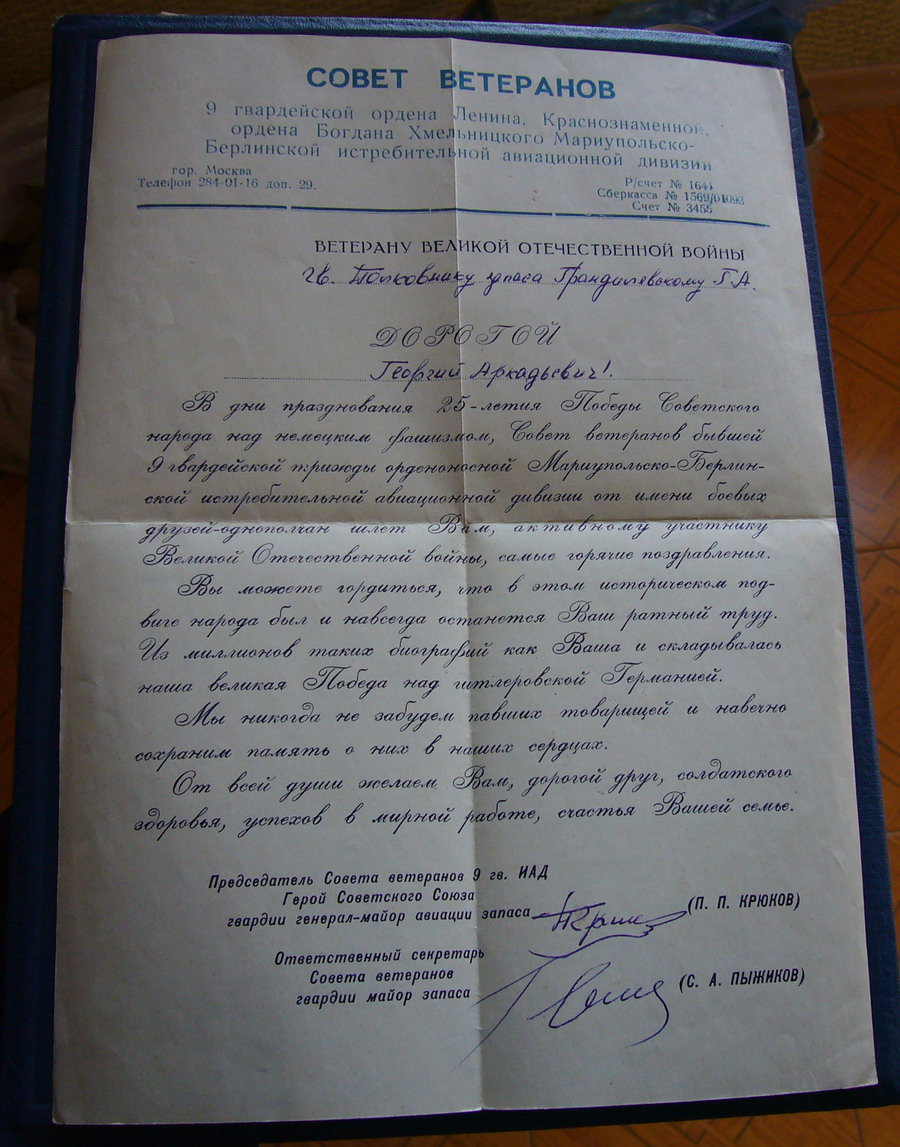 СОВЕТ ВЕТЕРАНОВ
9 гвардейской ордена Ленина, Краснознаменной,
ордена Богдана Хмельницкого Мариупольско-
Берлинской истребительной авиационной дивизии
гор. Москва
Телефон 284-01-16 доп. 29.
Р/счет № 1644
Сберкасса № 1569/01093
Счет № 3455
ВЕТЕРАНУ ВЕЛИКОЙ ОТЕЧЕСТВЕННОЙ ВОЙНЫ
Гв. Полковнику запаса Грандилевскому Г.А.
ДОРОГОЙ
Георгий Аркадьевич!
В дни празднования 25-летия Победы Советского
народа над немецким фашизмом, Совет ветеранов бывшей
9 гвардейской трижды орденоносной Мариупольско-Берлин-
ской истребительной авиационной дивизии от имени боевых
друзей-однополчан шлет Вам, активному участнику
Великой Отечественной войны, самые горячие поздравления.
Вы можете гордиться, что в этом историческом под-
виге народа был и навсегда останется Ваш ратный труд.
Из миллионов таких биографий как Ваша и складывалась
наша великая Победа над гитлеровской Германией.
Мы никогда не забудем павших товарищей и навечно
сохраним память о них в наших сердцах.
От всей души желаем Вам, дорогой друг, солдатского
здоровья, успехов в мирной работе, счастья Вашей семье.
Председатель Совета ветеранов 9 гв. ИАД
Герой Советского Союза
гвардии генерал-майор авиации запаса
(П. П. КРЮКОВ)
Ответственный секретарь
Совета ветеранов
гвардии майор запаса
(С. А. ПЫЖИКОВ)